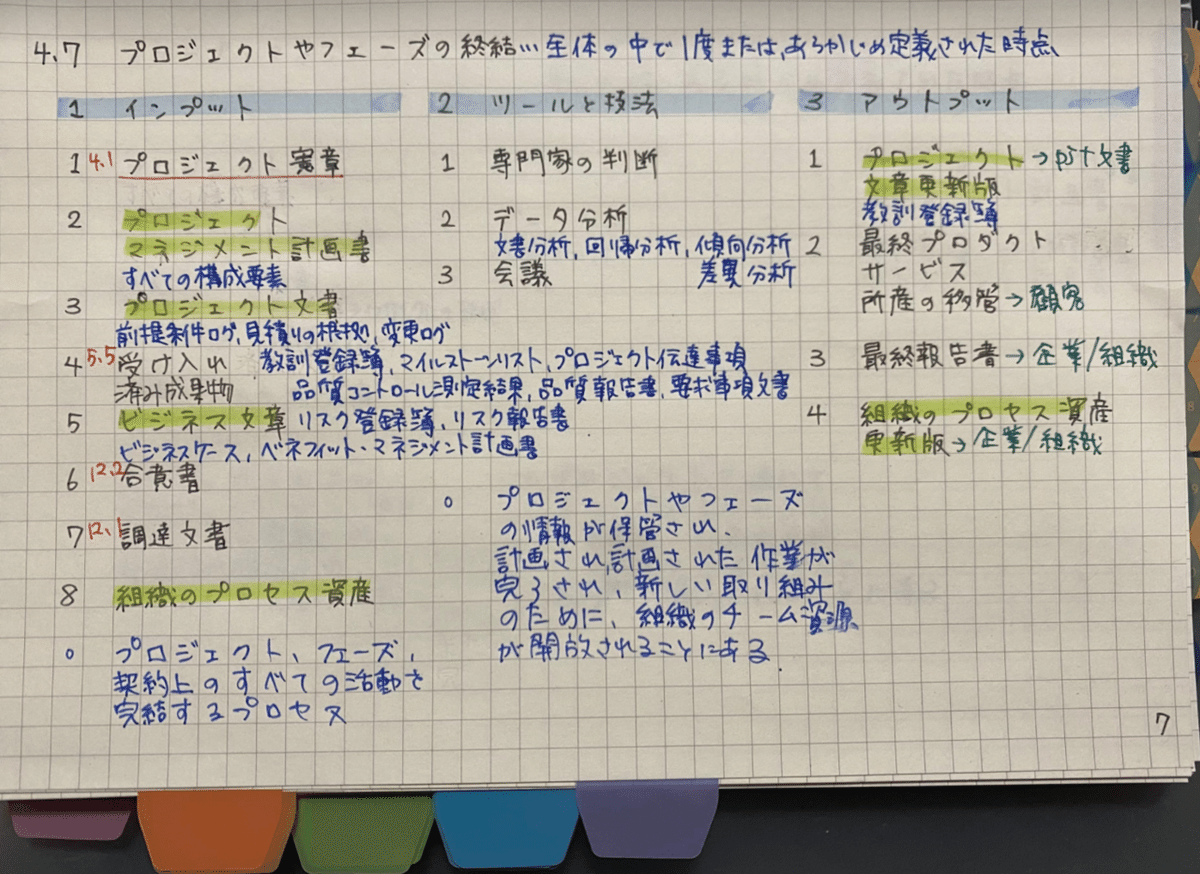 4.7 プロジェクトやフェーズの終結… 全体の中で1度または、あらかじめ定義された時点
1 インプット
1 4.1 プロジェクト憲章
2 プロジェクト
マネジメント計画書
すべての構成要素
3 プロジェクト文書
前提条件ログ, 見積りの根拠, 変更ログ
4 5.5 受け入れ 教訓登録簿, マイルストーンリスト, プロジェクト伝達事項
済み成果物 品質コントロール測定結果, 品質報告書, 要求事項文書
5 ビジネス文章 リスク登録簿, リスク報告書
ビジネスケース, ベネフィット・マネジメント計画書
6 12.2 合意書
7 12.1 調達文書
8 組織のプロセス資産
○ プロジェクト、フェーズ、
契約上のすべての活動を
完結するプロセス
2 ツールと技法
1 専門家の判断
2 データ分析
文書分析, 回帰分析, 傾向分析
差異分析
3 会議
○ プロジェクトやフェーズ
の情報が保管され、
計画され計画された作業が
完了され、新しい取り組み
のために、組織のチーム資源
が開放されることにある.
3 アウトプット
1 プロジェクト→PJT文書
文章更新版
教訓登録簿
2 最終プロダクト
サービス
所産の移管→顧客
3 最終報告書→企業/組織
4 組織のプロセス資産
更新版→企業/組織
7